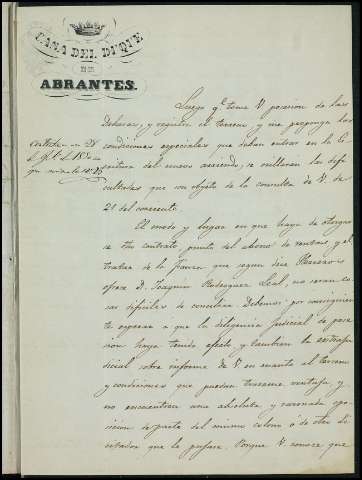 CASA DEL DUQUE
DE
ABRANTES.
Luego qe tome V. posesion de las
Dehesas, y registre el terreno y me proponga las
condiciones especiales que deban entrar en la Es-
critura del nuevo arriendo, se orillarán las difi-
cultades que son objeto de la consulta de V. de
21 del corriente.
El modo y lugar en que haya de otorgar-
se tal contrato, punto del abono de rentas, y el
tratar de la fianza que segun dice
ofrece D. Joaquin Rodriguez Leal, no seran co-
sas dificiles de conciliar. Debemos por consiguien-
te esperar á que la diligencia judicial de pose-
sion haya tenido efecto, y tambien la extraju-
dicial sobre informe de V. en cuanto al terreno
y condiciones que puedan traerme ventaja y
no encuentren una absoluta y razonada opo-
sicion de parte del mismo colono ó de otro li-
citador que le pujase. Porque V. conoce que